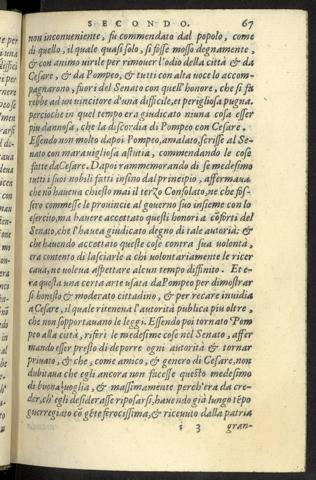 SECONDO. 67
non inconueniente, fu commendato dal popolo, come
di quello, il quale quasi solo, si fosse mosso degnamente,
& con animo uirile per rimouer l'odio della città & da
Cesare, & da Pompeo, & tutti con alta uoce lo accom-
pagnarono, fuori del Senato con quell'honore, che si fa
rebbe ad un uincitore d'una difficile, et perigliosa pugna.
percioche in quel tempo era giudicato niuna cosa esser
piu dannosa, che la discordia di Pompeo con Cesare.
Essendo non molto dapoi Pompeo, amalato, scrisse al Se-
nato con marauigliosa astutia, commendando le cose
fatte da Cesare. Dapoi rammemorando di se medesimo
tutti i suoi nobili fatti insino dal principio, affermaua
che nō haueua chiesto mai il terzo Consolato, ne che fos-
sero commesse le prouincie al gouerno suo insieme con lo
esercito, ma hauere accettato questi honori a cōforti del
Senato, che l'haueа giudicato degno di tale autorià: &
che hauendo accettate queste cose contra sua uolontà,
era contento di lasciarle a chi uolontariamente le ricer
caua, ne uoleua aspettare alcun tempo diffinito. Et e-
ra questa una certa arte usata da Pompeo per dimostrar
si honesto & moderato cittadino, & per recare inuidia
a Cesare, il quale riteneua l'autorità publica piu oltre,
che non sopportauano le leggi. Essendo poi tornato Pom
peo alla città, riferì le medesime cose nel Senato, affer
mando esser presto di deporre ogni autorità & tornar
priuato, & che, come amico, & genero di Cesare, non
dubitaua che egli ancora non facesse questo medesimo
di buona uoglia, & massimamente perch'era da cre-
der, ch'egli desiderasse riposarsi, hauendo già lungo tēpo
guerregiato cō gēte ferocissima, & riceuuto dalla patria
i 3 gran-